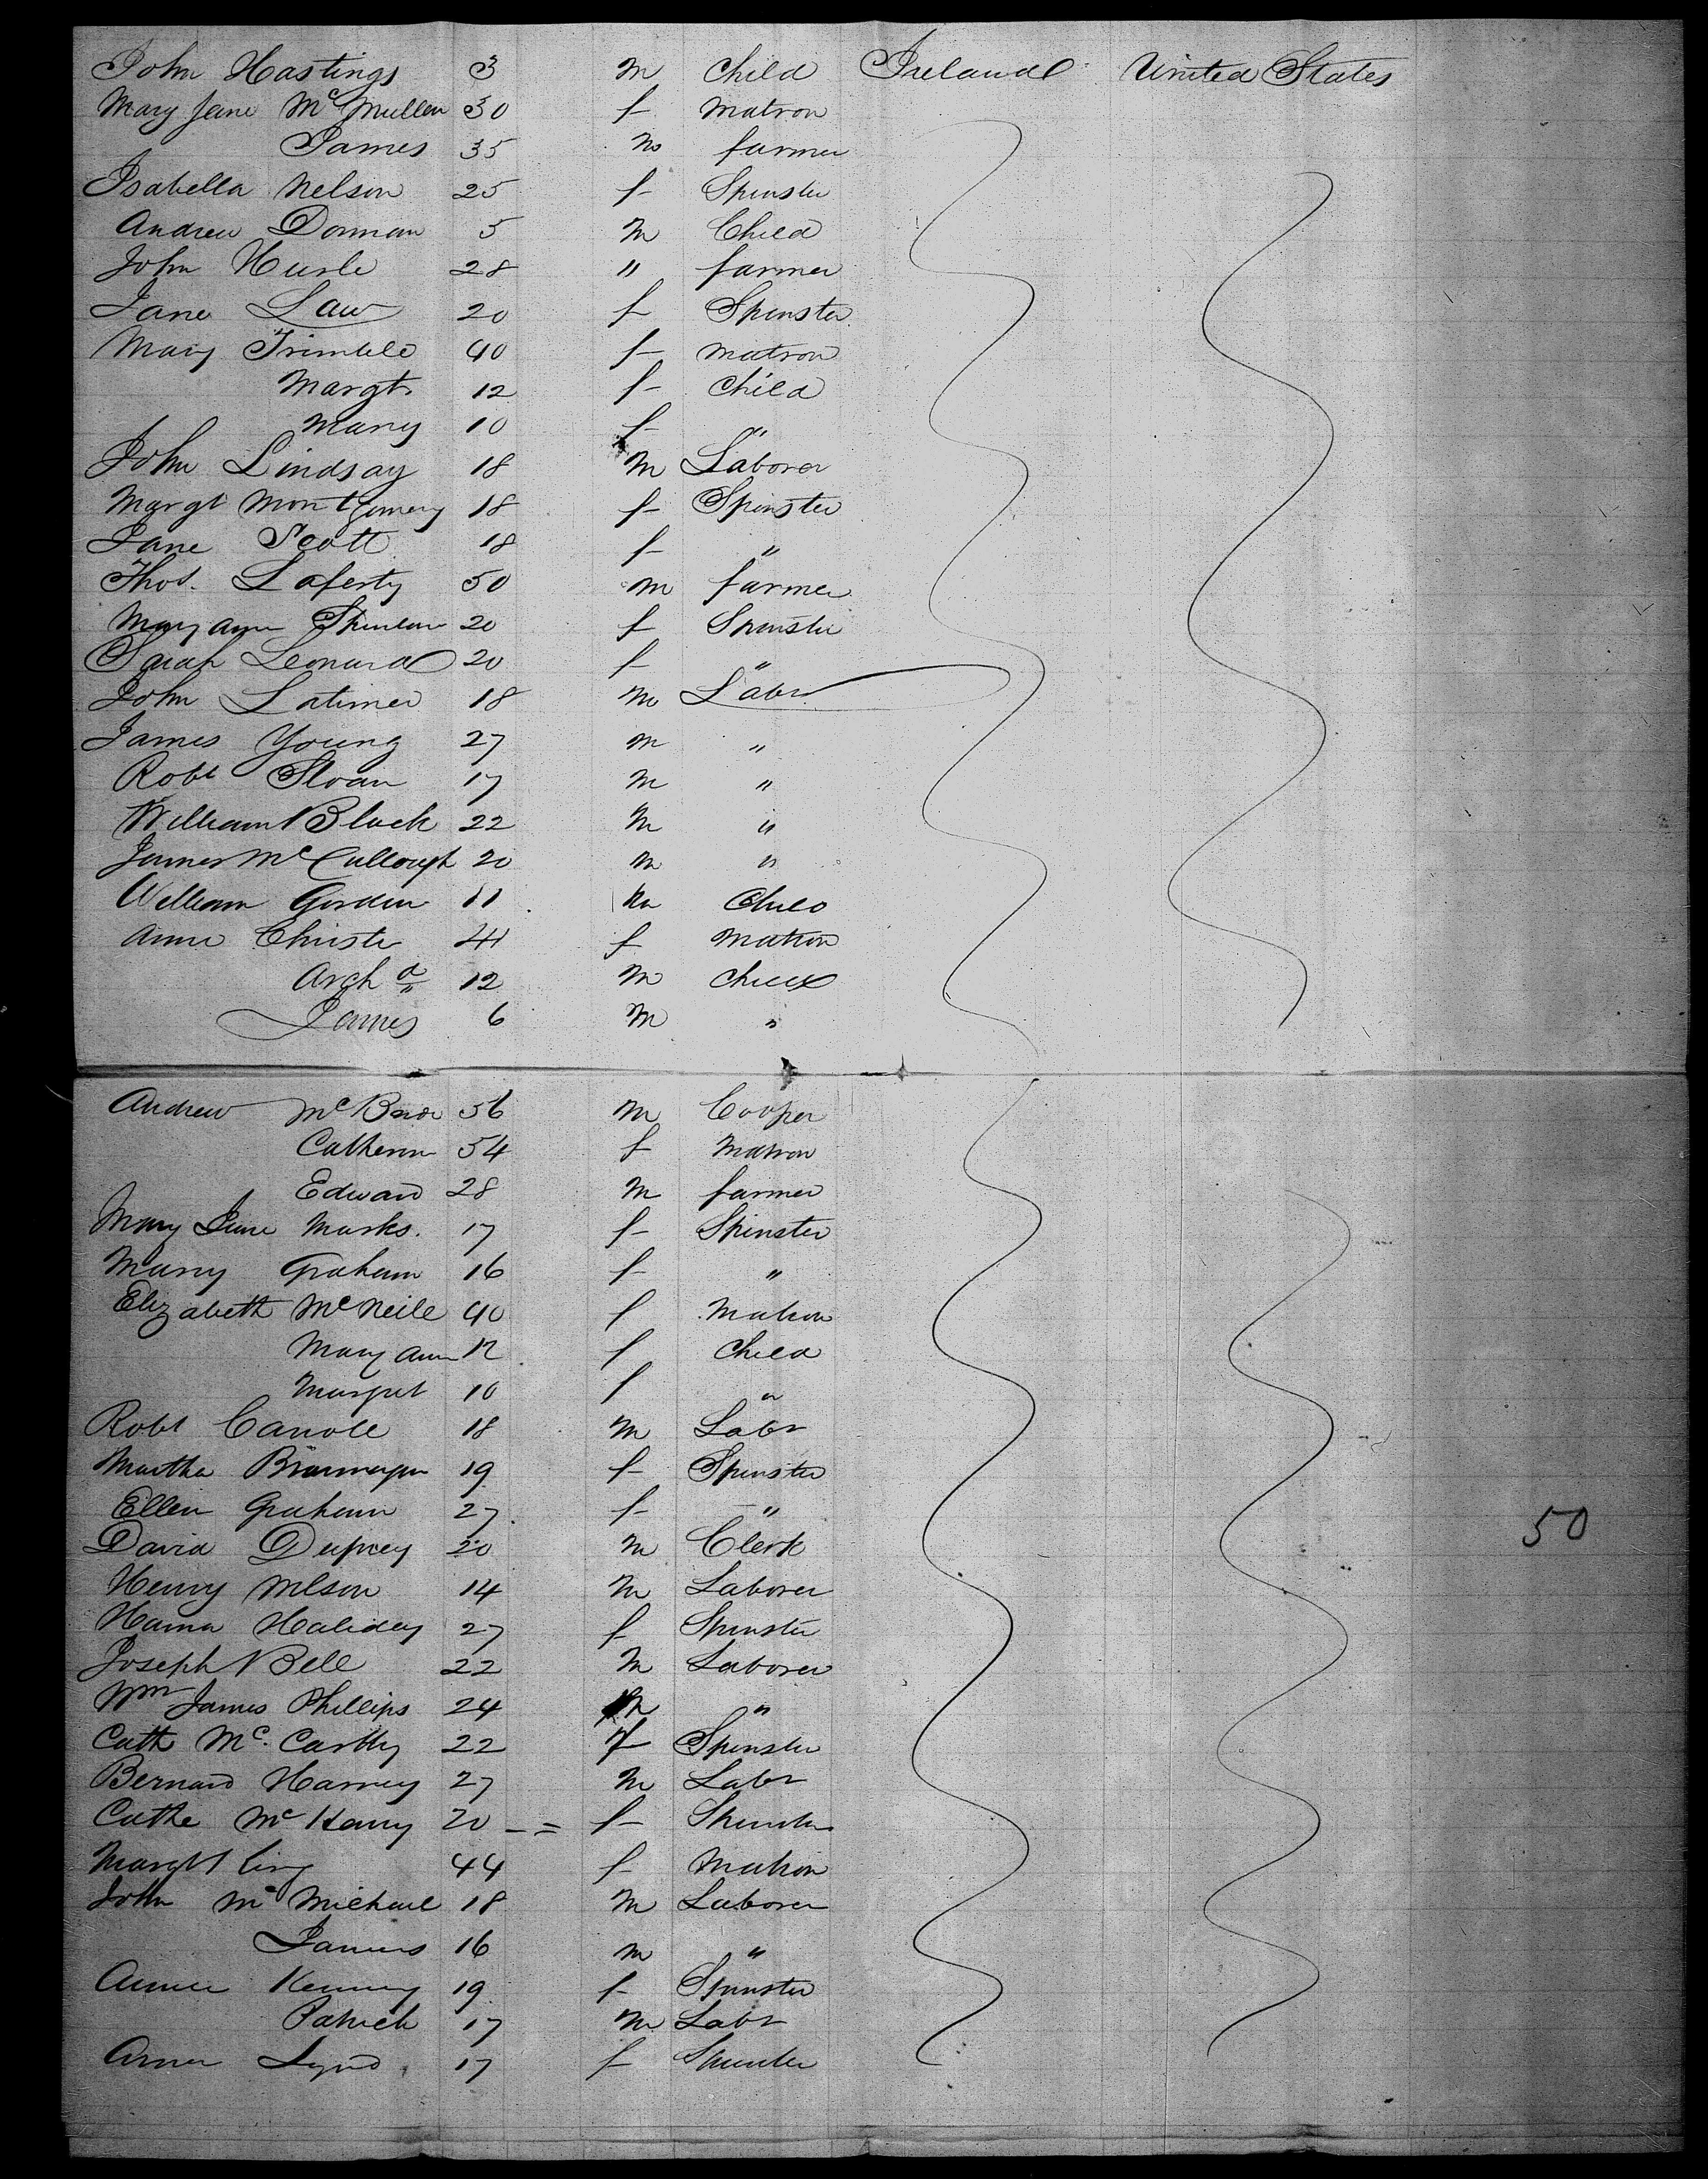 John Hastings 3 m Child Ireland United States
Mary Jane Mc Mullen 30 f matron
James 35 m farmer
Isabella Nelson 25 f Spinster
Andrew Dorman 5 m Child
John 28 " farmer
Jane Law 20 f Spinster
Mary Trimble 40 f matron
Margt. 12 f Child
Mary 10 f "
John Lindsay 18 m Laborer
Margt Montgomery 18 f Spinster
Jane Scott 18 f "
Thos. Laferty 50 m farmer
Mary Ann 20 f Spinster
Sarah Leonard 20 f "
John Latimer 18 m Labr
James Young 27 m "
Robt Sloan 17 m "
William Black 22 m "
James McCullough 20 m "
William Gordon 11 m Child
Anne Christe f matron
Archd 12 m Child
James 6 m "
Andrew McBride 56 m Cooper
Catherine 54 f Matron
Edward 28 m farmer
Mary Jane Marks. 17 f Spinster
Mary Graham 16 f "
Elizabeth McNeile 40 f Matron
Mary Ann 12 f Child
Margret 10 f "
Robt 18 m Labr
Martha 19 f Spinster
Ellen Graham 27 f "
David 20 m Clerk 50
Henry Wilson 14 m Laborer
Hanna Haliday 27 f Spinster
Joseph Bell 22 m Laborer
Wm James Phillips 24 m "
Cath Mc. Carthy 22 f Spinster
Bernard Harvey 27 m Labr
Cathe 20 - = f Spinster
Margt King 44 f Matron
John McMichael 18 m Laborer
James 16 m "
Kenney 19 f Spinster
Patrick 17 m Labr
Lynd 17 f Spinster